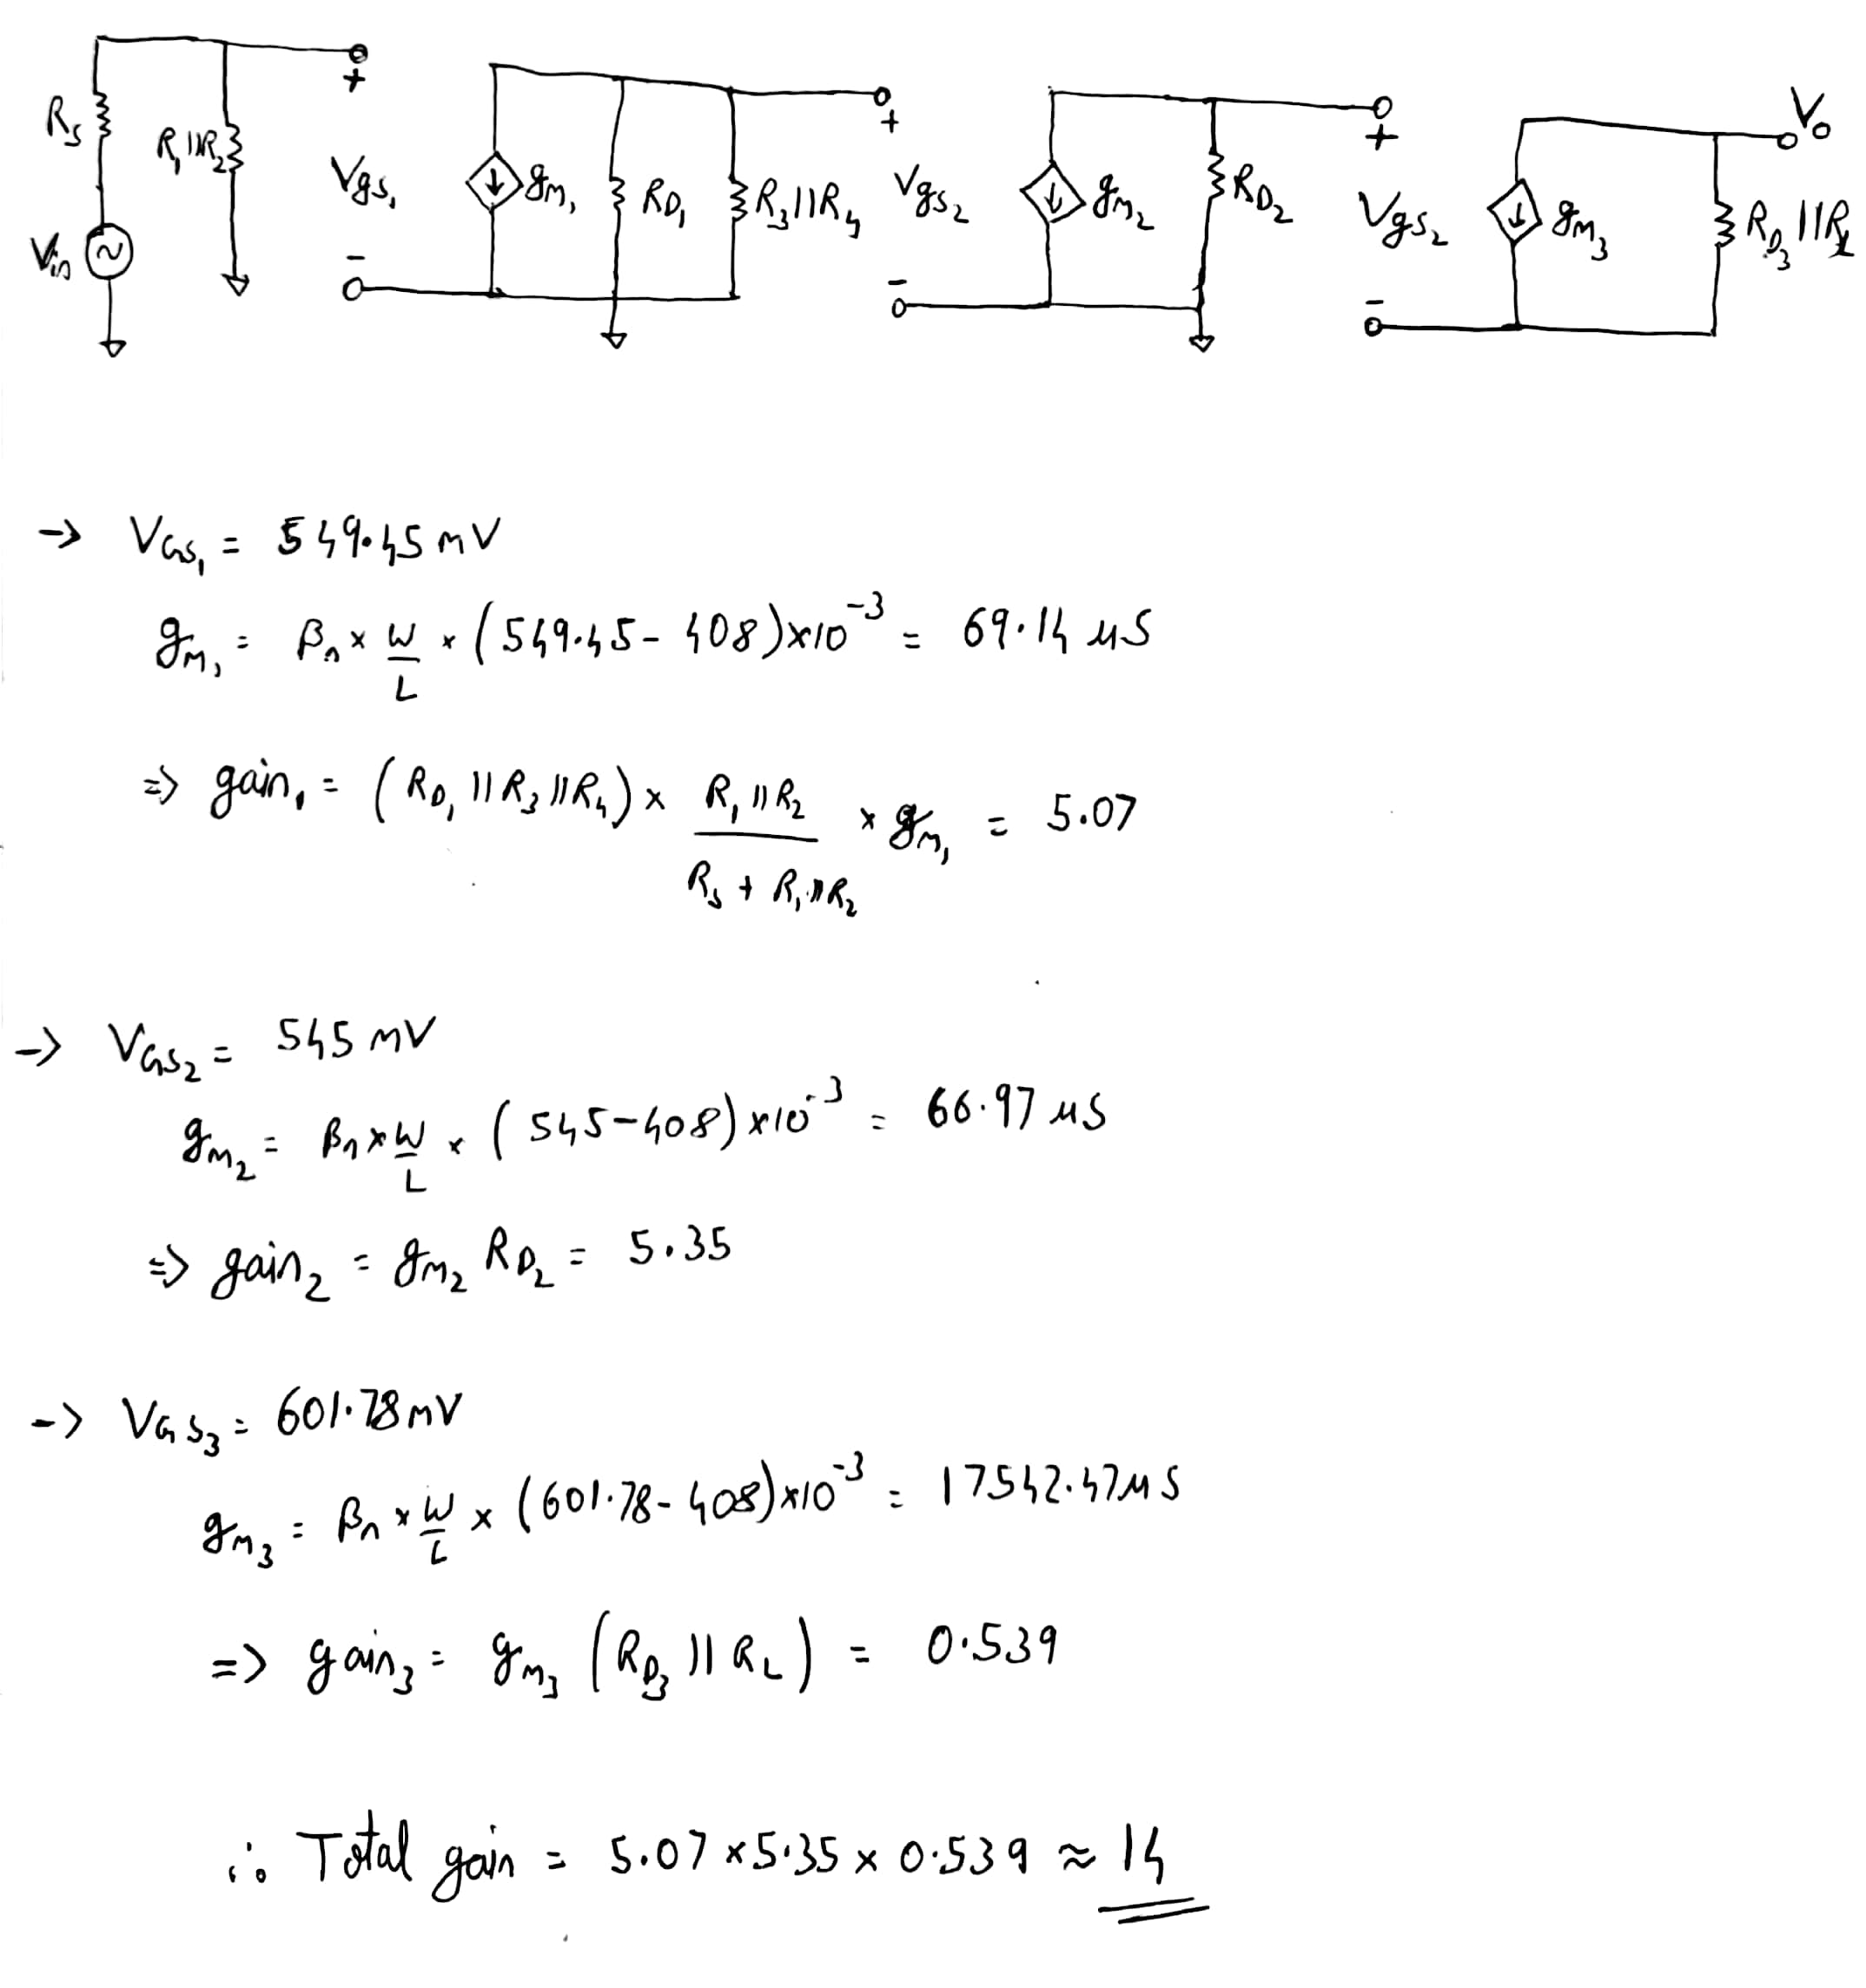 R_S
V_in
R_1||R_2
+
V_gs_1
-
g_m_1
R_D_1
R_3||R_4
+
V_gs_2
-
g_m_2
R_D_2
+
V_gs_2
-
g_m_3
R_D_3||R_L
V_o
-> V_GS_1 = 549.45 mV
g_m_1 = β_n x W/L x (549.45 - 408)x10^-3 = 69.14 μS
=> gain_1 = (R_D_1 || R_3 || R_4) x (R_1 || R_2)/(R_S + R_1 || R_2) x g_m_1 = 5.07
-> V_GS_2 = 545 mV
g_m_2 = β_n x W/L x (545 - 408) x10^-3 = 66.97 μS
=> gain_2 = g_m_2 R_D_2 = 5.35
-> V_GS_3 = 601.78 mV
g_m_3 = β_n x W/L x (601.78 - 408)x10^-3 = 17542.47 μS
=> gain_3 = g_m_3 (R_D_3 || R_L) = 0.539
∴ Total gain = 5.07 x 5.35 x 0.539 ≈ 14